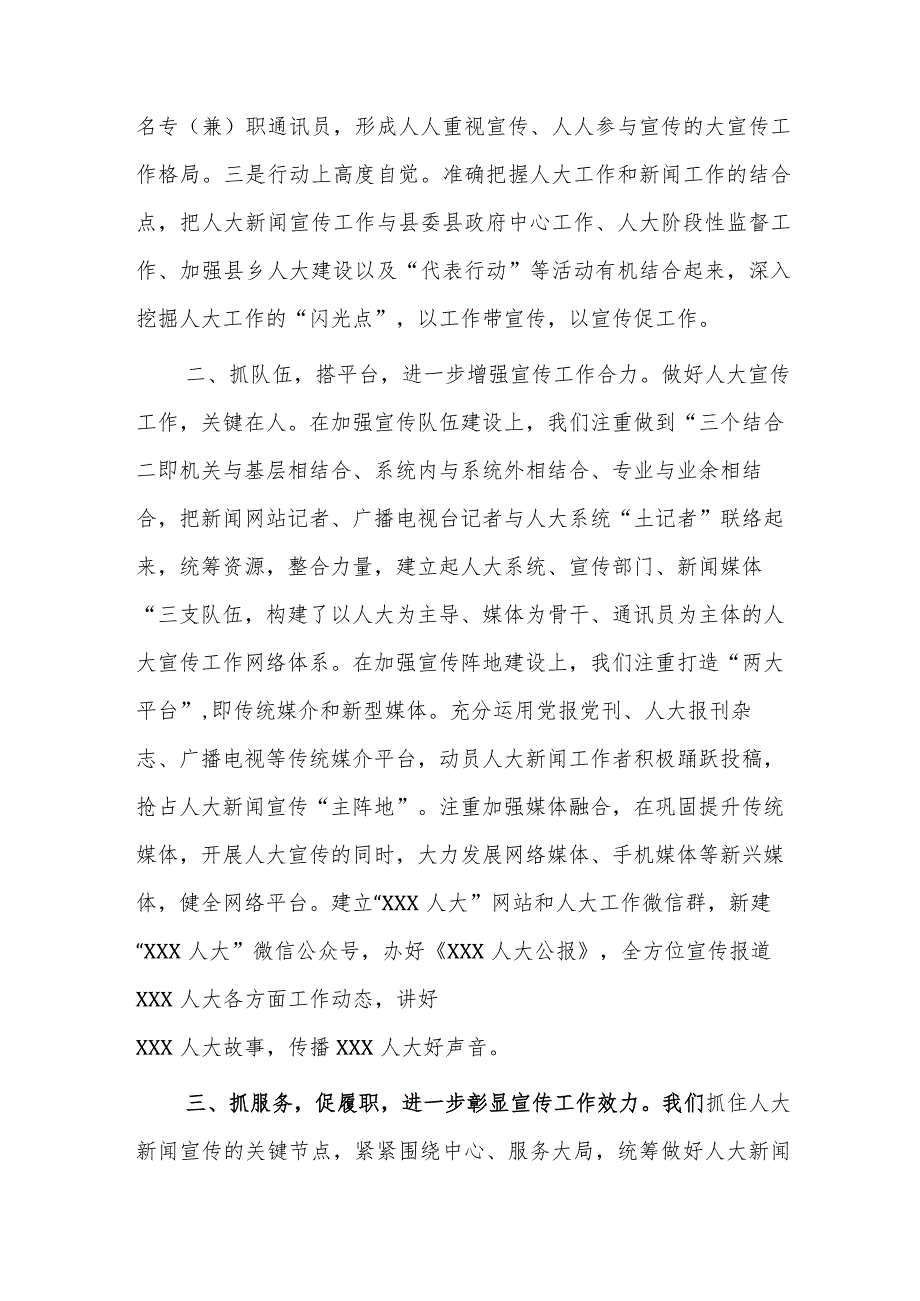 名专（兼）职通讯员，形成人人重视宣传、人人参与宣传的大宣传工
作格局。三是行动上高度自觉。准确把握人大工作和新闻工作的结合
点，把人大新闻宣传工作与县委县政府中心工作、人大阶段性监督工
作、加强县乡人大建设以及“代表行动”等活动有机结合起来，深入
挖掘人大工作的“闪光点”，以工作带宣传，以宣传促工作。
二、抓队伍，搭平台，进一步增强宣传工作合力。做好人大宣传
工作，关键在人。在加强宣传队伍建设上，我们注重做到“三个结合
二即机关与基层相结合、系统内与系统外相结合、专业与业余相结
合，把新闻网站记者、广播电视台记者与人大系统“土记者”联络起
来，统筹资源，整合力量，建立起人大系统、宣传部门、新闻媒体
“三支队伍，构建了以人大为主导、媒体为骨干、通讯员为主体的人
大宣传工作网络体系。在加强宣传阵地建设上，我们注重打造“两大
平台”,即传统媒介和新型媒体。充分运用党报党刊、人大报刊杂
志、广播电视等传统媒介平台，动员人大新闻工作者积极踊跃投稿，
抢占人大新闻宣传“主阵地”。注重加强媒体融合，在巩固提升传统
媒体，开展人大宣传的同时，大力发展网络媒体、手机媒体等新兴媒
体，健全网络平台。建立“XXX 人大”网站和人大工作微信群，新建
“XXX 人大”微信公众号，办好《XXX 人大公报》，全方位宣传报道
XXX 人大各方面工作动态，讲好
XXX 人大故事，传播 XXX 人大好声音。
三、抓服务，促履职，进一步彰显宣传工作效力。我们抓住人大
新闻宣传的关键节点，紧紧围绕中心、服务大局，统筹做好人大新闻